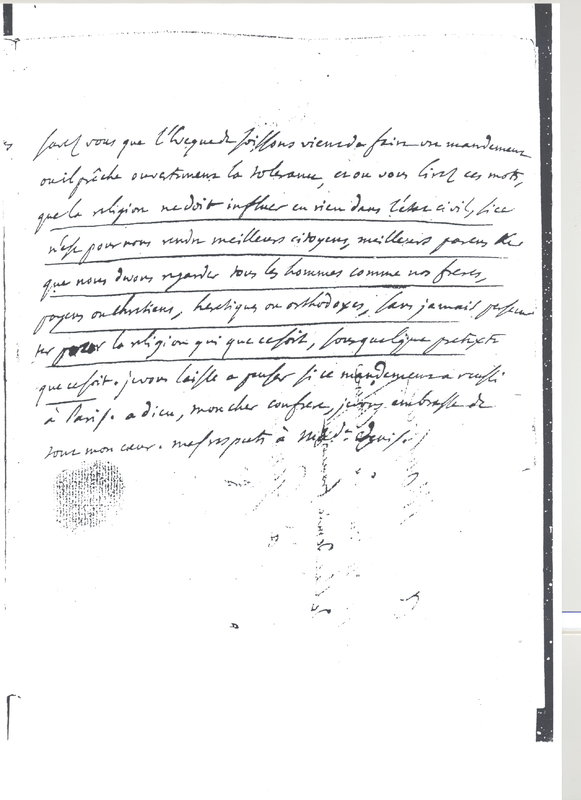 savez vous que l'Eveque de soissons vient de faire un mandement
ou il prêche ouvertement la tolerance, et ou vous lirez ces mots,
que la religion ne doit influer en rien dans l'état civil, si ce
n'est pour nous rendre meilleurs citoyens, meilleurs parens &c
que nous devons regarder tous les hommes comme nos freres,
payens ou chretiens, heretiques ou orthodoxes, sans jamais persecu
ter pour la religion qui que ce soit, sous quelque pretexte
que ce soit. je vous laisse a penser si ce mandement a reussi
à Paris. adieu, mon cher confrere, je vous embrasse de
tout mon coeur. mes respects à